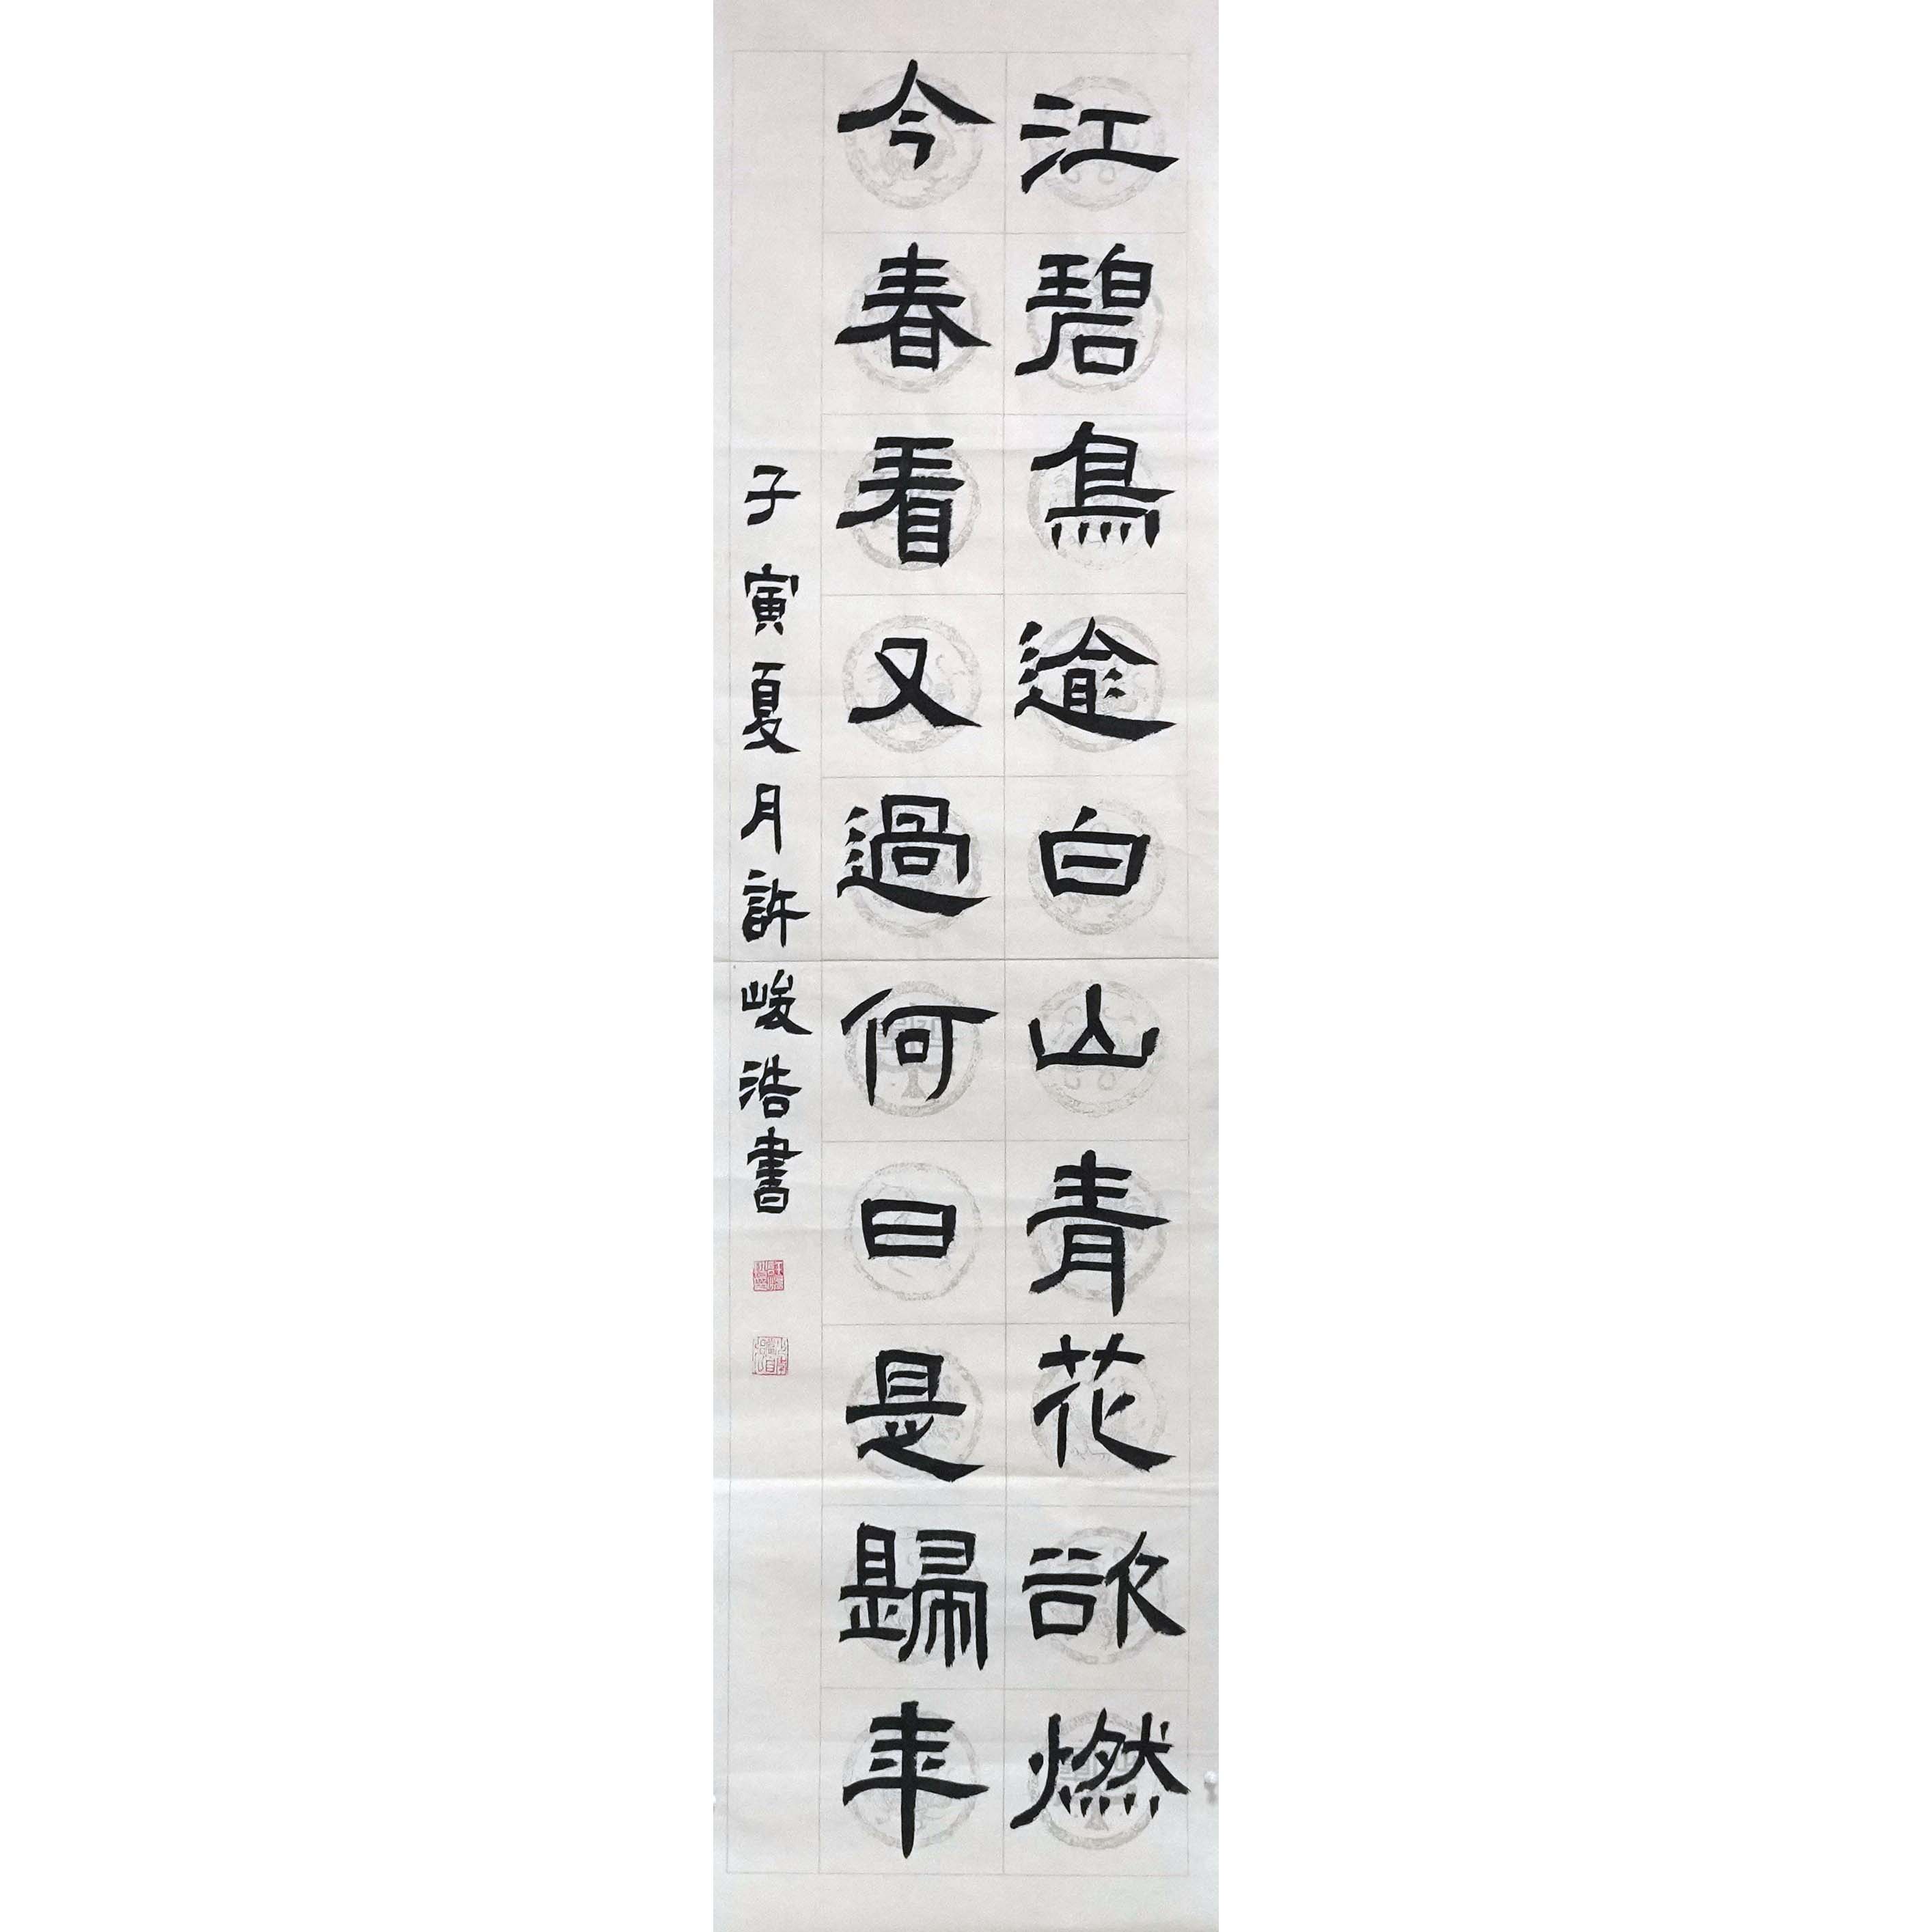 江碧鳥逾白山青花欲燃
今春看又過何日是歸年
子寅夏月許峻浩書